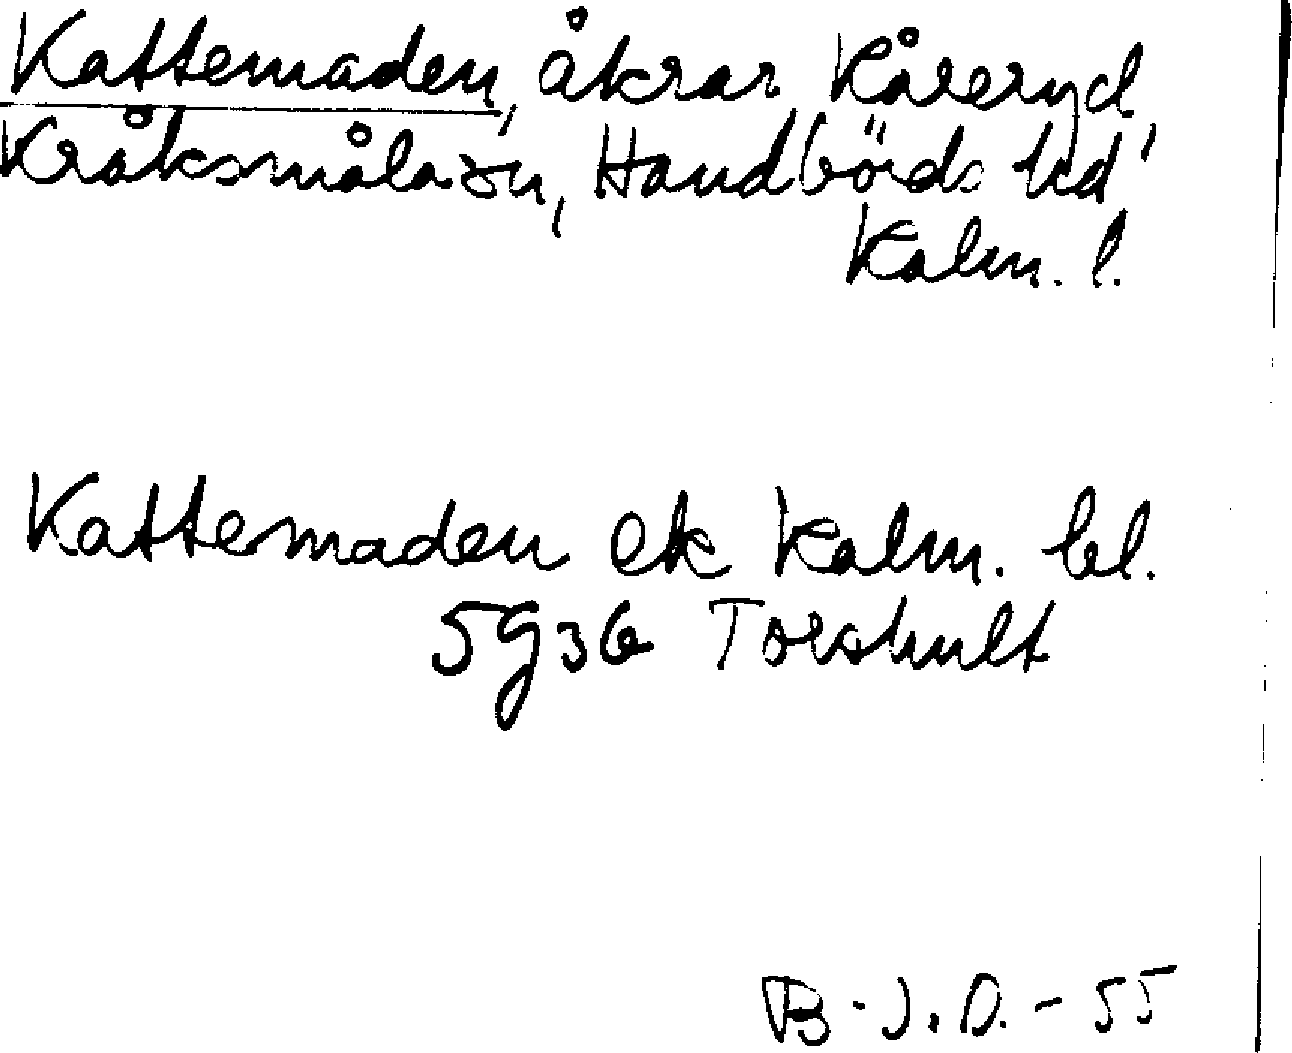 Kattemaden, åkrar Kåreryd
Kråksmåla sn, Handbörds hd
Kalm. l.
Kattemaden ek Kalm. bl.
5g36 Torshult
B-J.D.-55